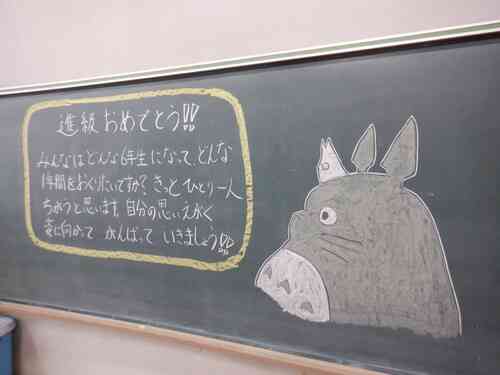 進級おめでとう!!
みんなはどんな6年生になって、どんな
1年間をおくりたいですか?きっとひとり一人
ちがうと思います。自分の思いえがく
姿に向かって がんばって いきましょう!!